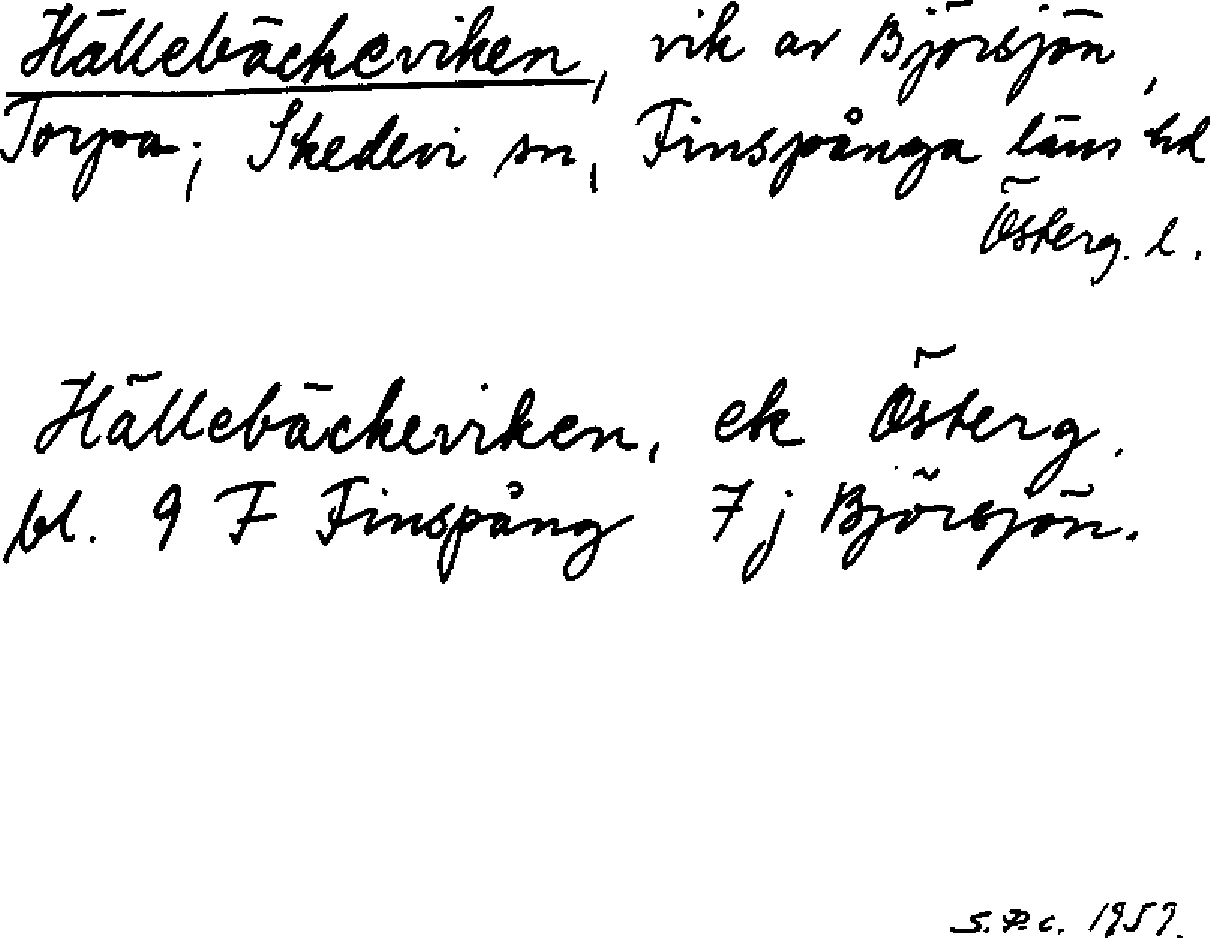 Hällebäckeviken, vik av Björsjön,
Torpa; Skedevi sn, Finspånga läns hd
Österg. l.
Hällebäckeviken, ek Österg.
bl. 9 F Finspång 7 j Björsjön.
S.P.c. 1959.